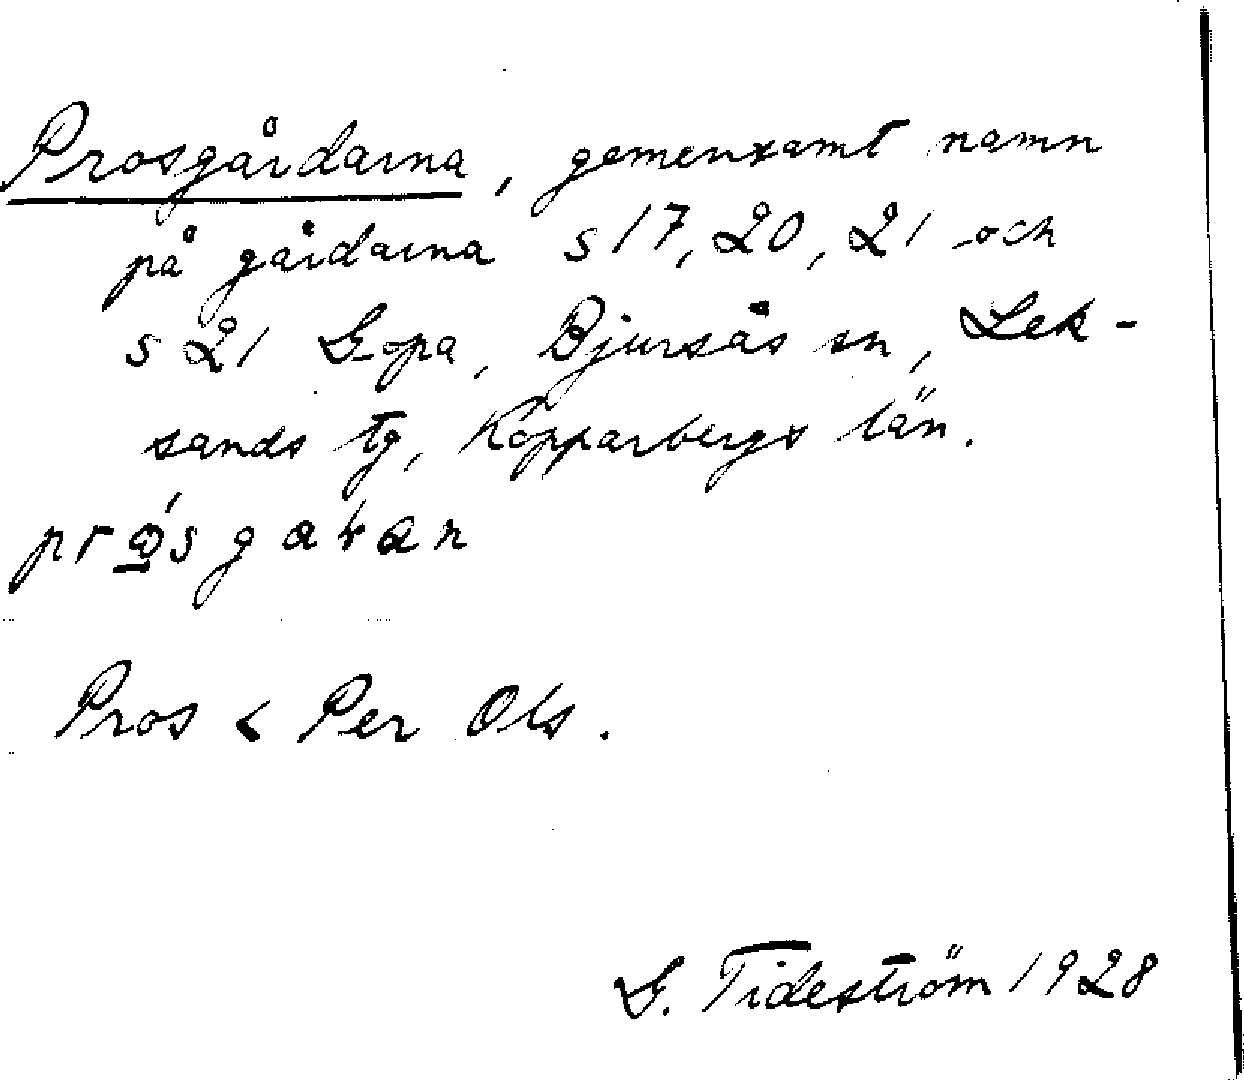 Prosgårdarna, gemensamt namn
på gårdarna s 17, 20, 21 och
s 21 Gopa, Bjursås sn, Lek-
sands tg, Kopparbergs län.
Pros < Per Ols.
G. Tideström 1928